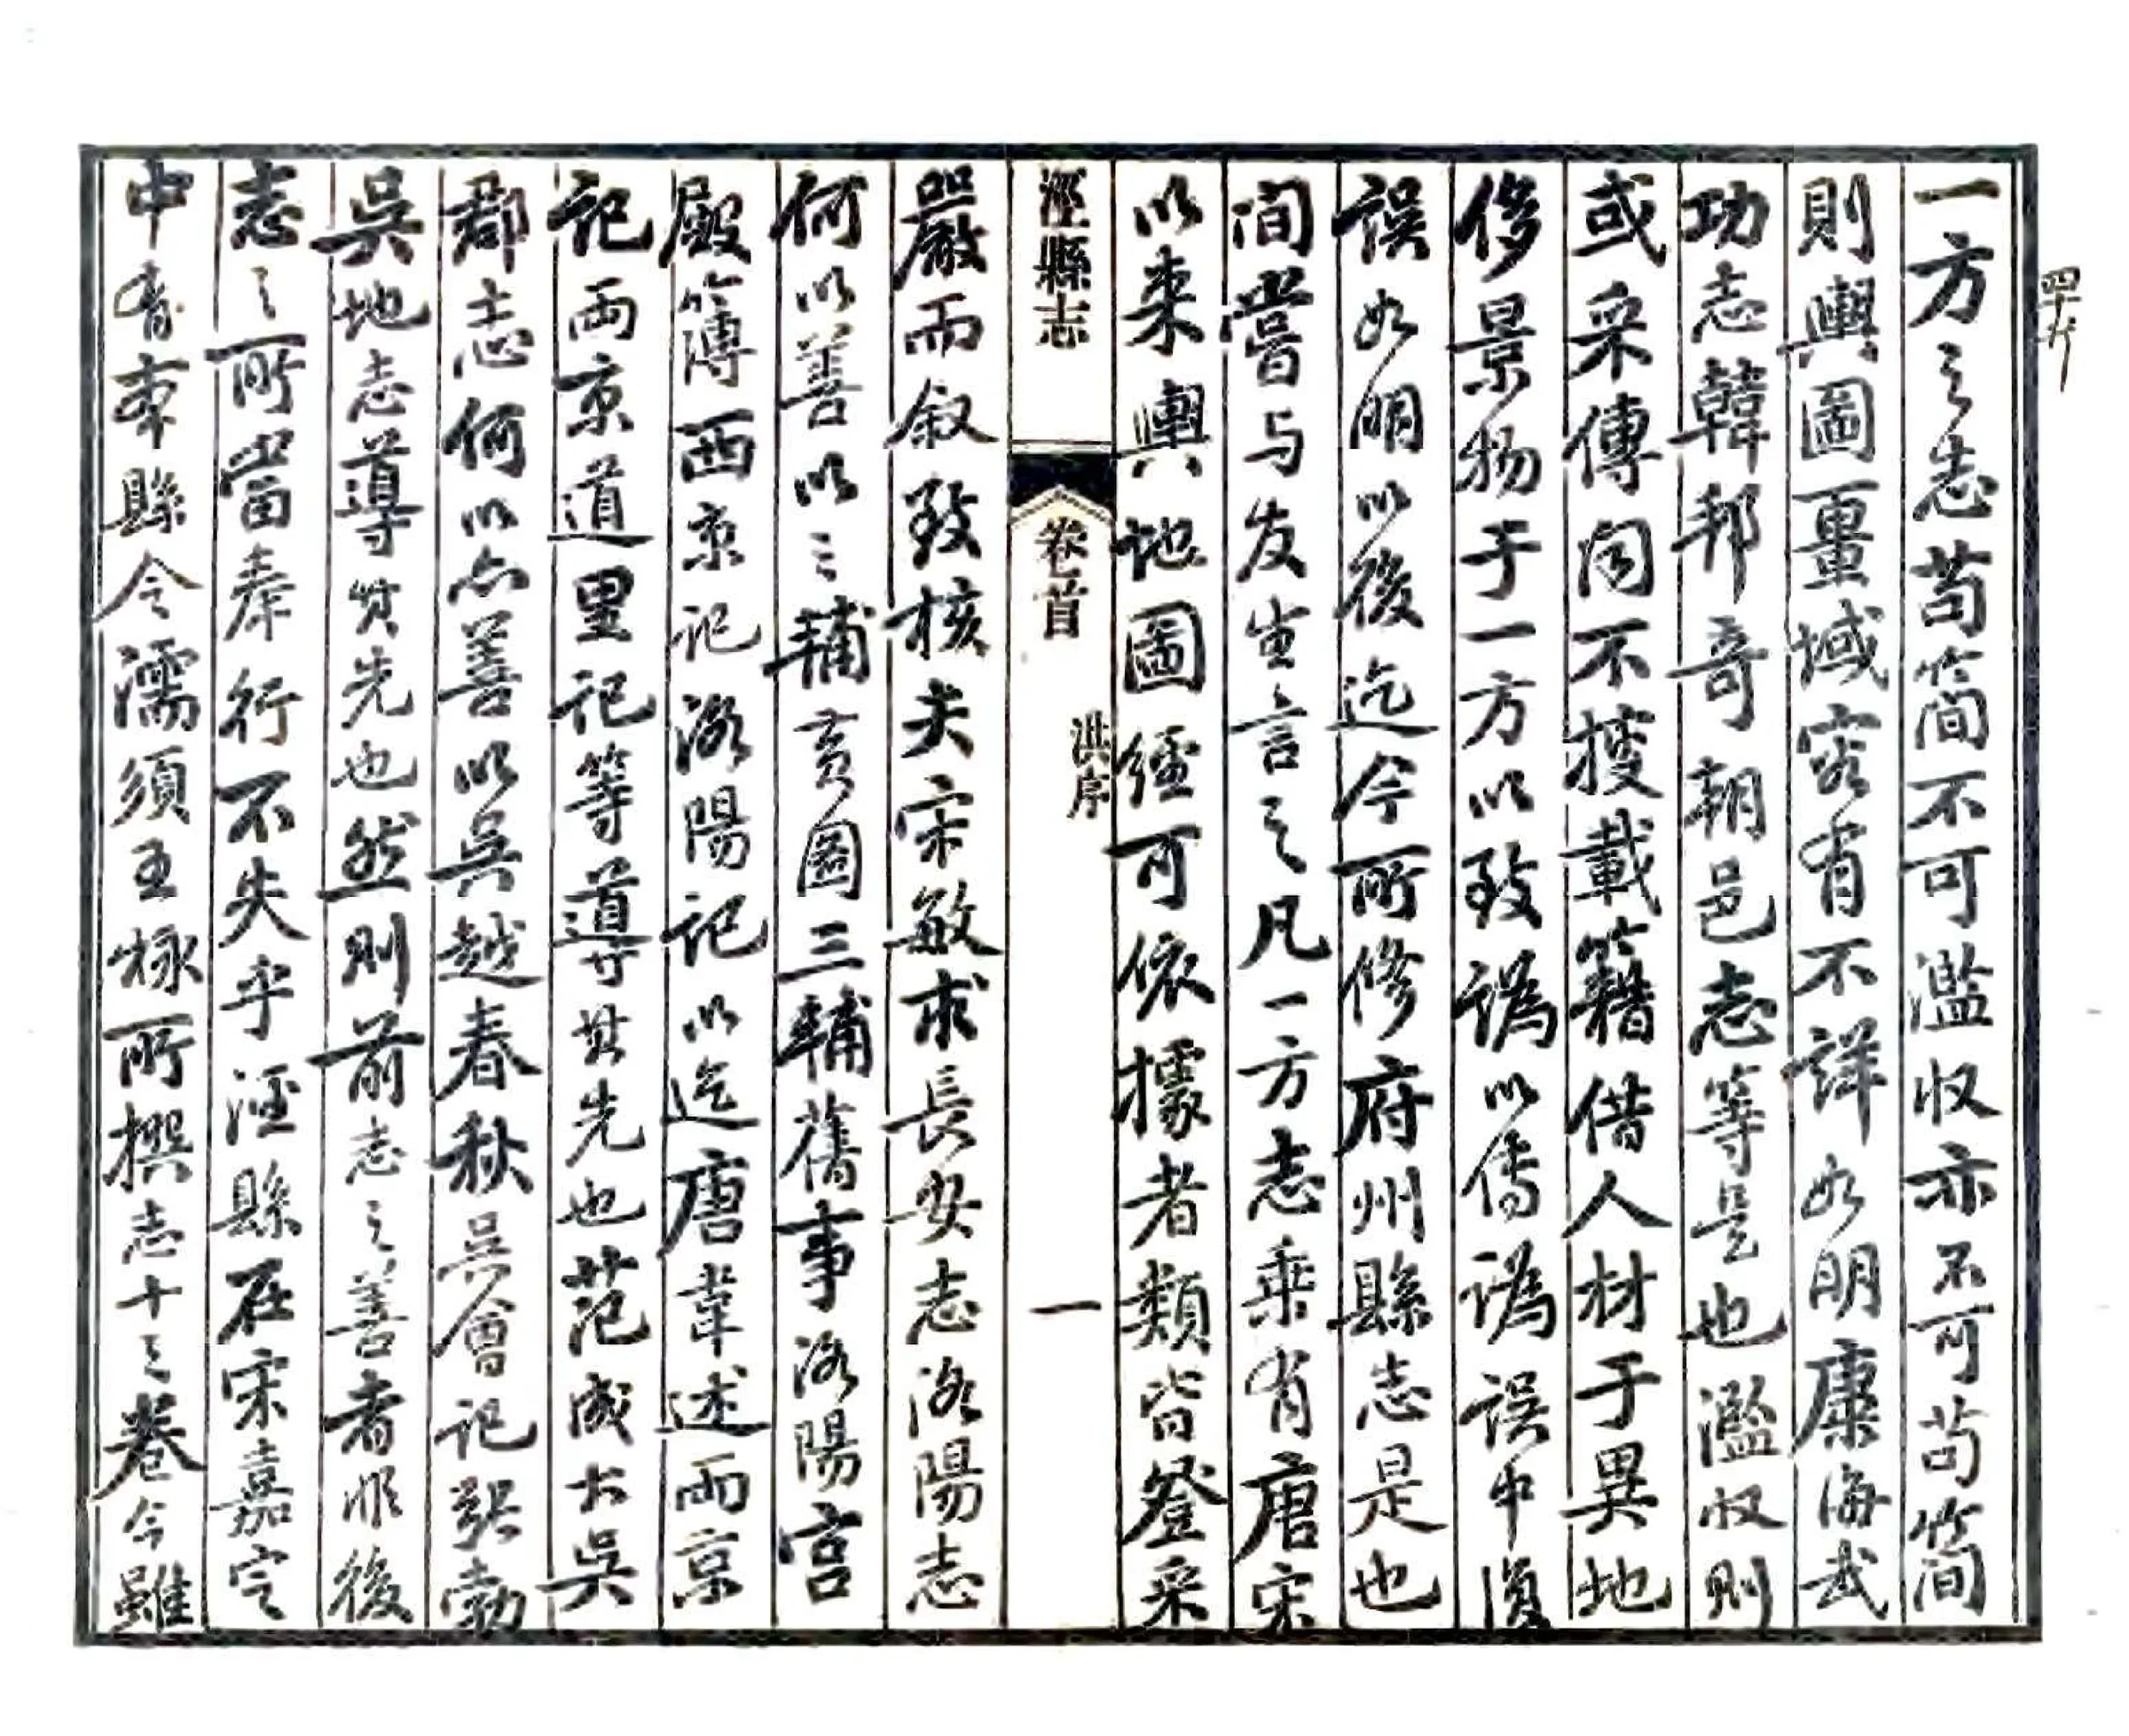 一方之志苟簡不可濫收亦不可苟簡
則輿圖畺域容有不詳如明康海武
功志韓邦奇朝邑志等是也濫收則
或采傳聞不搜載籍借人材于異地
侈景物于一方以致譌以傳譌誤中復
誤如明以後迄今所修府州縣志是也
間嘗与友生言之凡一方志乘有唐宋
以來輿地圖經可依據者類皆登采
涇縣志
卷首
洪序
一
嚴而叙致核夫宋敏求長安志洛陽志
何以善以三輔黃圖三輔舊事洛陽宮
殿簿西京記洛陽記以迄唐韋述兩京
記兩京道里記等導其先也范成大吳
郡志何以亦善以吳越春秋吳會記張勃
吳地志導其先也然則前志之善者惟後
志之所當奉行不失乎涇縣在宋嘉定
中有東縣令濡須王栐所撰志十三卷今雖